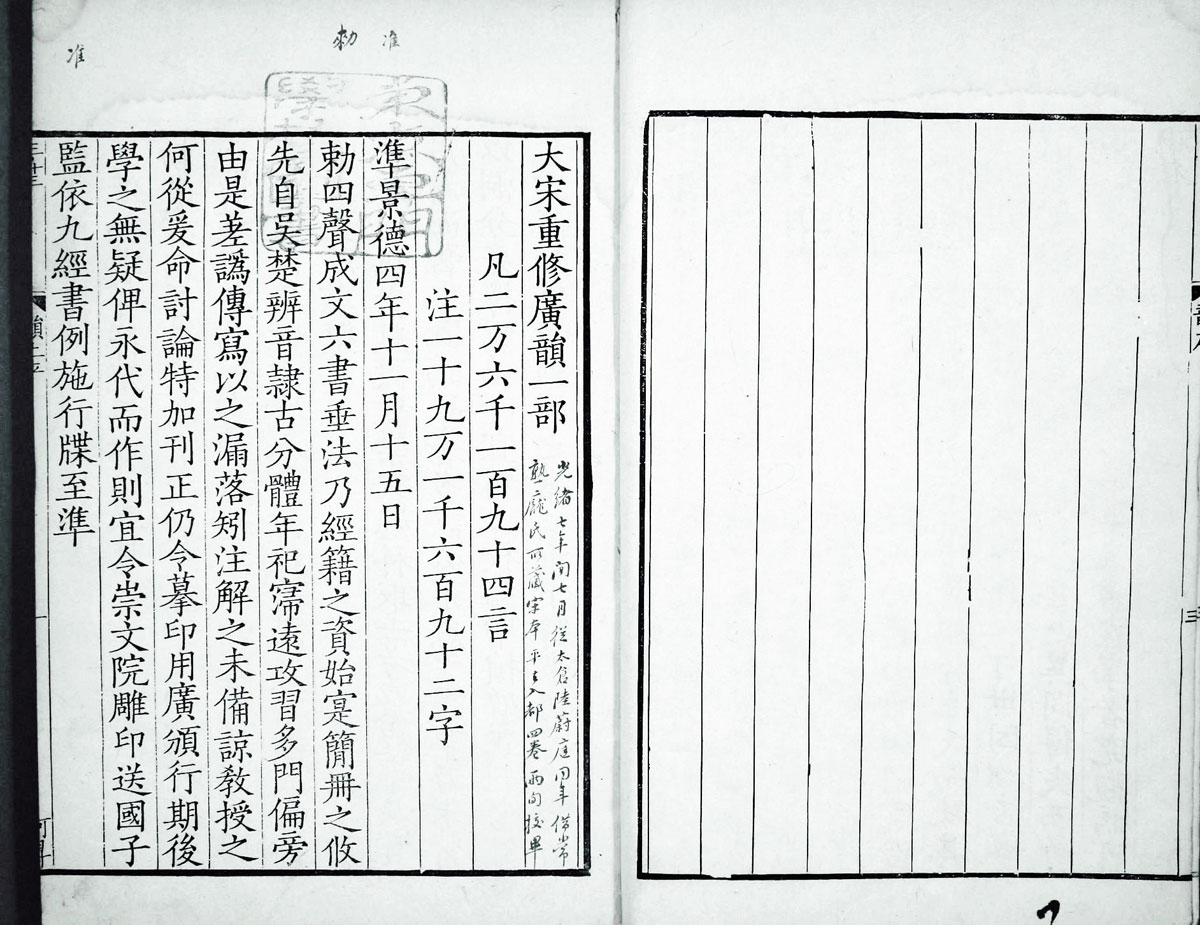 准
勑
准
大宋重修廣韻一部
光緒七年閏七月從太倉陸蔚庭同年借常
熟龐氏所藏宋本平上入都四卷兩旬挍畢
凡二万六千一百九十四言
注一十九万一千六百九十二字
準景德四年十一月十五日
勑四聲成文六書垂法乃經籍之資始寔簡冊之攸
先自吳楚辨音隷古分體年祀寖遠攻習多門偏旁
由是差譌傳寫以之漏落矧注解之未備諒教授之
何從爰命討論特加刊正仍令摹印用廣頒行期後
學之無疑俾永代而作則宜令崇文院雕印送國子
監依九經書例施行牒至準